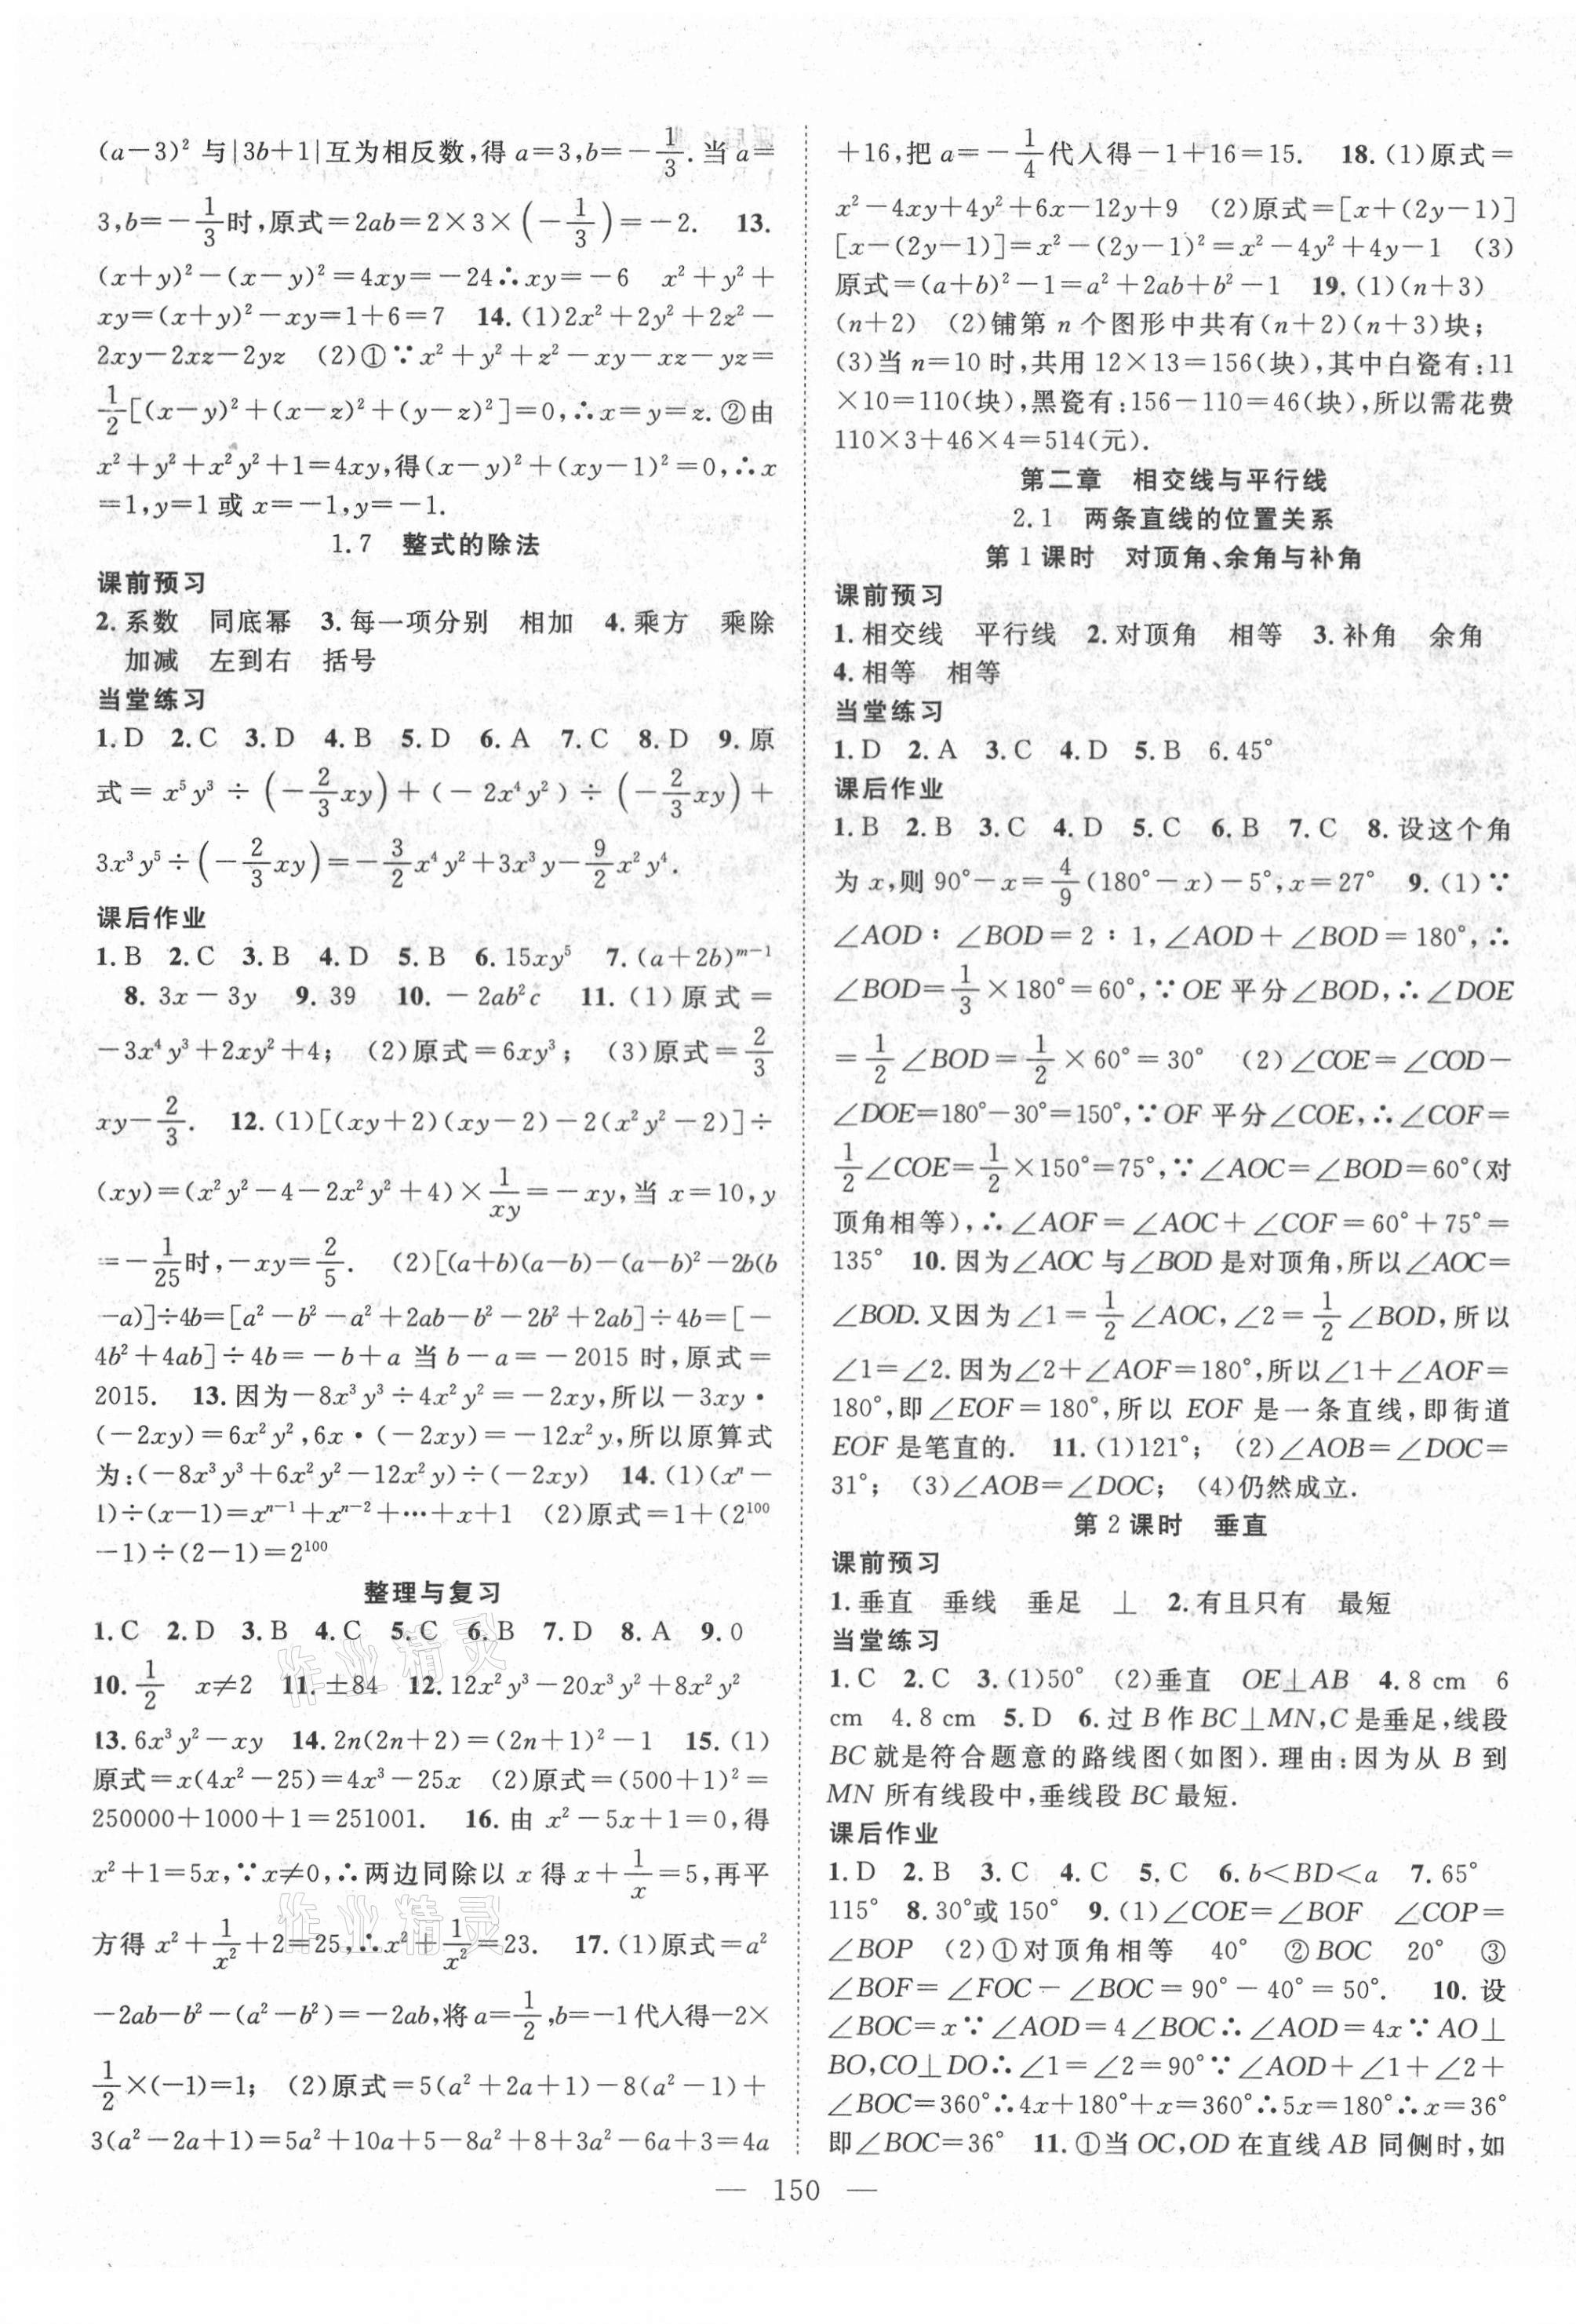 (a−3)²与|3b+1|互为相反数,得a=3,b=−1/3.当a=
3,b=−1/3时,原式=2ab=2×3×(−1/3)=−2. 13.
(x+y)²−(x−y)²=4xy=−24∴xy=−6 x²+y²+
xy=(x+y)²−xy=1+6=7 14.(1)2x²+2y²+2z²−
2xy−2xz−2yz (2)①∵x²+y²+z²−xy−xz−yz=
1/2[(x−y)²+(x−z)²+(y−z)²]=0,∴x=y=z.②由
x²+y²+x²y²+1=4xy,得(x−y)²+(xy−1)²=0,∴x
=1,y=1或x=−1,y=−1.
1.7 整式的除法
课前预习
2.系数 同底幂 3.每一项分别 相加 4.乘方 乘除
加减 左到右 括号
当堂练习
1.D 2.C 3.D 4.B 5.D 6.A 7.C 8.D 9.原
式=x⁵y³÷(−2/3xy)+(−2x⁴y²)÷(−2/3xy)+
3x³y⁵÷(−2/3xy)=−3/2x⁴y²+3x³y−9/2x²y⁴.
课后作业
1.B 2.C 3.B 4.D 5.B 6.15xy⁵ 7.(a+2b)ᵐ⁻¹
8.3x−3y 9.39 10.−2ab²c 11.(1)原式=
−3x⁴y³+2xy²+4; (2)原式=6xy³; (3)原式=2/3
xy−2/3. 12.(1)[(xy+2)(xy−2)−2(x²y²−2)]÷
(xy)=(x²y²−4−2x²y²+4)×1/xy=−xy,当x=10,y
=−1/25时,−xy=2/5. (2)[(a+b)(a−b)−(a−b)²−2b(b
−a)]÷4b=[a²−b²−a²+2ab−b²−2b²+2ab]÷4b=[−
4b²+4ab]÷4b=−b+a当b−a=−2015时,原式=
2015. 13.因为−8x³y³÷4x²y²=−2xy,所以−3xy·
(−2xy)=6x²y²,6x·(−2xy)=−12x²y,所以原算式
为:(−8x³y³+6x²y²−12x²y)÷(−2xy) 14.(1)(xⁿ−
1)÷(x−1)=xⁿ⁻¹+xⁿ⁻²+⋯+x+1 (2)原式=1+(2¹⁰⁰
−1)÷(2−1)=2¹⁰⁰
整理与复习
1.C 2.D 3.B 4.C 5.C 6.B 7.D 8.A 9.0
10.1/2 x≠2 11.±84 12.12x²y³−20x³y²+8x²y²
13.6x³y²−xy 14.2n(2n+2)=(2n+1)²−1 15.(1)
原式=x(4x²−25)=4x³−25x (2)原式=(500+1)²=
250000+1000+1=251001. 16.由x²−5x+1=0,得
x²+1=5x,∵x≠0,∴两边同除以x得x+1/x=5,再平
方得x²+1/x²+2=25,∴x²+1/x²=23. 17.(1)原式=a²
−2ab−b²−(a²−b²)=−2ab,将a=1/2,b=−1代入得−2×
1/2×(−1)=1; (2)原式=5(a²+2a+1)−8(a²−1)+
3(a²−2a+1)=5a²+10a+5−8a²+8+3a²−6a+3=4a
+16,把a=−1/4代入得−1+16=15. 18.(1)原式=
x²−4xy+4y²+6x−12y+9 (2)原式=[x+(2y−1)]
[x−(2y−1)]=x²−(2y−1)²=x²−4y²+4y−1 (3)
原式=(a+b)²−1=a²+2ab+b²−1 19.(1)(n+3)
(n+2) (2)铺第n个图形中共有(n+2)(n+3)块;
(3)当n=10时,共用12×13=156(块),其中白瓷有:11
×10=110(块),黑瓷有:156−110=46(块),所以需花费
110×3+46×4=514(元).
第二章 相交线与平行线
2.1 两条直线的位置关系
第1课时 对顶角、余角与补角
课前预习
1.相交线 平行线 2.对顶角 相等 3.补角 余角
4.相等 相等
当堂练习
1.D 2.A 3.C 4.D 5.B 6.45°
课后作业
1.B 2.B 3.C 4.D 5.C 6.B 7.C 8.设这个角
为x,则90°−x=4/9(180°−x)−5°,x=27° 9.(1)∵
∠AOD∶∠BOD=2∶1,∠AOD+∠BOD=180°,∴
∠BOD=1/3×180°=60°,∵OE平分∠BOD,∴∠DOE
=1/2∠BOD=1/2×60°=30° (2)∠COE=∠COD−
∠DOE=180°−30°=150°,∵OF平分∠COE,∴∠COF=
1/2∠COE=1/2×150°=75°,∵∠AOC=∠BOD=60°(对
顶角相等),∴∠AOF=∠AOC+∠COF=60°+75°=
135° 10.因为∠AOC与∠BOD是对顶角,所以∠AOC=
∠BOD.又因为∠1=1/2∠AOC,∠2=1/2∠BOD,所以
∠1=∠2.因为∠2+∠AOF=180°,所以∠1+∠AOF=
180°,即∠EOF=180°,所以EOF是一条直线,即街道
EOF是笔直的. 11.(1)121°; (2)∠AOB=∠DOC=
31°; (3)∠AOB=∠DOC; (4)仍然成立.
第2课时 垂直
课前预习
1.垂直 垂线 垂足 ⊥ 2.有且只有 最短
当堂练习
1.C 2.C 3.(1)50° (2)垂直 OE⊥AB 4.8 cm 6
cm 4.8 cm 5.D 6.过B作BC⊥MN,C是垂足,线段
BC就是符合题意的路线图(如图).理由:因为从B到
MN所有线段中,垂线段BC最短.
课后作业
1.D 2.B 3.C 4.C 5.C 6.b<BD<a 7.65°
115° 8.30°或150° 9.(1)∠COE=∠BOF ∠COP=
∠BOP (2)①对顶角相等 40° ②BOC 20° ③
∠BOF=∠FOC−∠BOC=90°−40°=50°. 10.设
∠BOC=x∵∠AOD=4∠BOC∴∠AOD=4x∵AO⊥
BO,CO⊥DO∴∠1=∠2=90°∵∠AOD+∠1+∠2+
∠BOC=360°∴4x+180°+x=360°∴5x=180°∴x=36°
即∠BOC=36° 11.①当OC,OD在直线AB同侧时,如
— 150 —
作业精灵
作业精灵